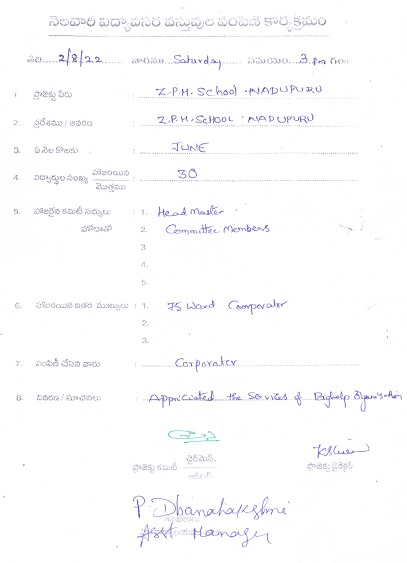 నెలవారి విద్యావసర వస్తువుల పంపిణి కార్యక్రమం
తేది 2/8/22 వారము Saturday సమయం 3.pm గం.
1. ప్రాజెక్టు పేరు Z.P.H. School. NADUPURU
2. ప్రదేశము / ఆవరణ Z.P.H. SCHOOL. NADUPURU
3. ఏ నెల కొరకు JUNE
4. విద్యార్థుల సంఖ్య హాజరయిన / మొత్తము 30
5. హాజరైన కమిటీ సభ్యులు 1. Head Master
హోదాతో 2. Committee Members
3.
4.
5.
6. హాజరయిన ఇతర ముఖ్యులు : 1. 75 Ward Coorporator
2.
3.
7. పంపిణీ చేసిన వారు Corporater
8. వివరణ / సూచనలు Appriciated the Services of Bighelp
ఛైర్‌మెన్.
ప్రాజెక్టు కమిటీ ప్రాజెక్టు డైరెక్టర్
P Dhanalakshmi
Asst Manager